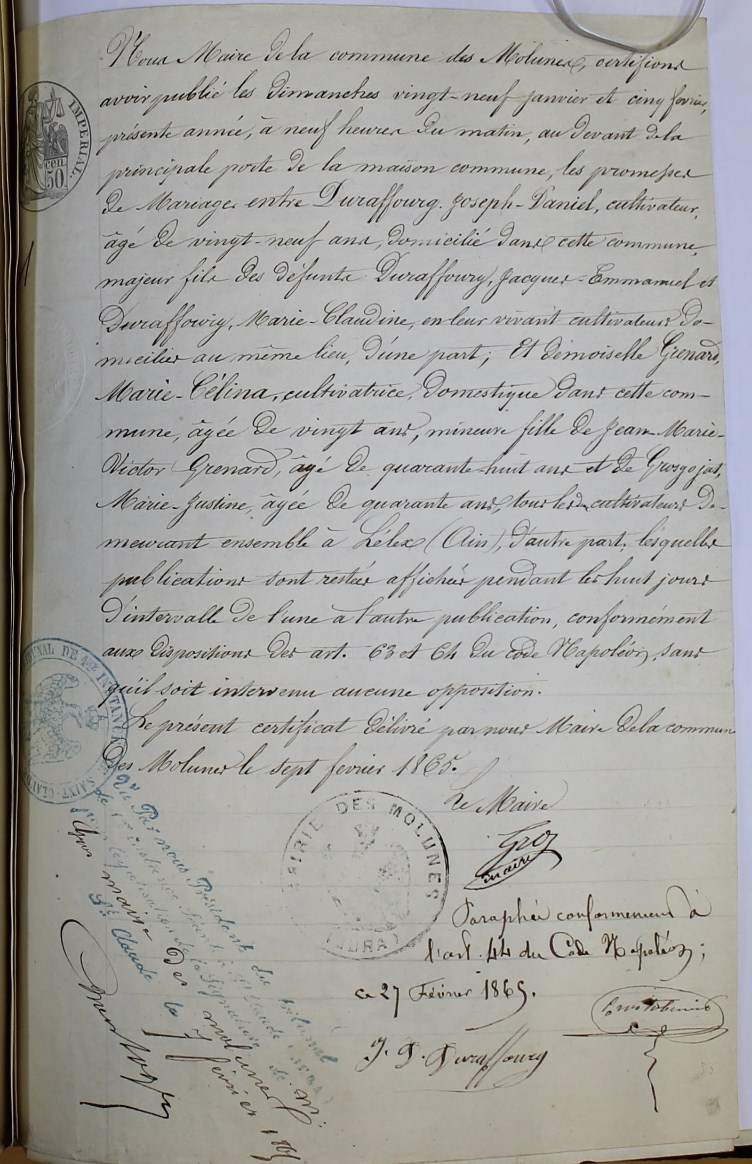 Nous Maire de la commune des Molunes, certifions
avoir publié les dimanches vingt-neuf janvier et cinq février,
présente année, à neuf heures du matin, au devant de la
principale porte de la maison commune, les promesses
de Mariage, entre Duraffourg, Joseph-Daniel, cultivateur,
âgé de vingt-neuf ans, domicilié dans cette commune,
majeur fils des défunts Duraffourg, Jacques-Emmanuel et
Duraffourg, Marie-Claudine, en leur vivant cultivateurs do-
miciliés au même lieu, d'une part; Et demoiselle Grenard,
Marie-Célina, cultivatrice, domestique dans cette com-
mune, âgée de vingt ans, mineure fille de Jean-Marie-
Victor Grenard, âgé de quarante-huit ans et de Grosgojat,
Marie-Justine, âgée de quarante ans, tous les deux cultivateurs de-
meurant ensemble à Lélex (Ain), d'autre part, lesquelles
publications sont restées affichées pendant les huit jours
d'intervalle de l'une à l'autre publication, conformément
aux dispositions des art. 63 et 64 du code Napoléon, sans
qu'il soit intervenu aucune opposition.
Le présent certificat délivré par nous Maire de la commune
des Molunes le sept février 1865.
Le Maire
Groz
maire
MAIRIE DES MOLUNES
(JURA)
Paraphé conformément à
l'art. 44 du Code Napoléon;
ce 27 Février 1865.
J. D. Duraffourg
IMPERIAL
50 cen
TRIBUNAL DE 1ère INSTANCE
SAINT-CLAUDE
Vu Par nous Président du tribunal
de 1ère instance séant à St Claude
pour légalisation de la signature de M.
Groz maire des molunes
St Claude le 7 février 1865